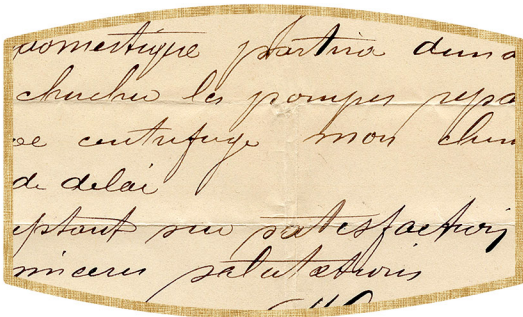 domestique partira dema
chercher les pompes repa
ce centrifuge mon chem
de délai
eptant sur satisfaction
sinceres salutations